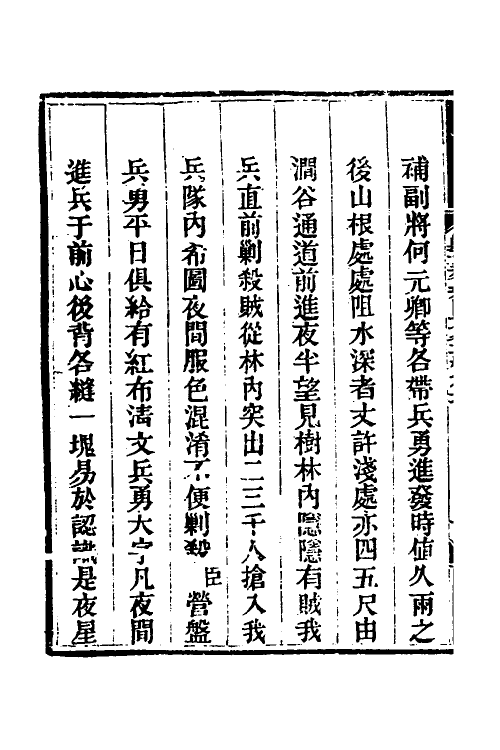 補副將何元卿等各帶兵勇進發時値久雨之
後山根處處阻水深者丈許淺處亦四五尺由
澗谷通道前進夜半望見樹林內隱隱有賊我
兵直前剿殺賊從林內突出二三千人搶入我
兵隊內希圖夜間服色混淆不便剿殺臣營盤
兵勇平日俱給有紅布淸文兵勇大字凡夜間
進兵于前心後背各縫一塊易於認識是夜星